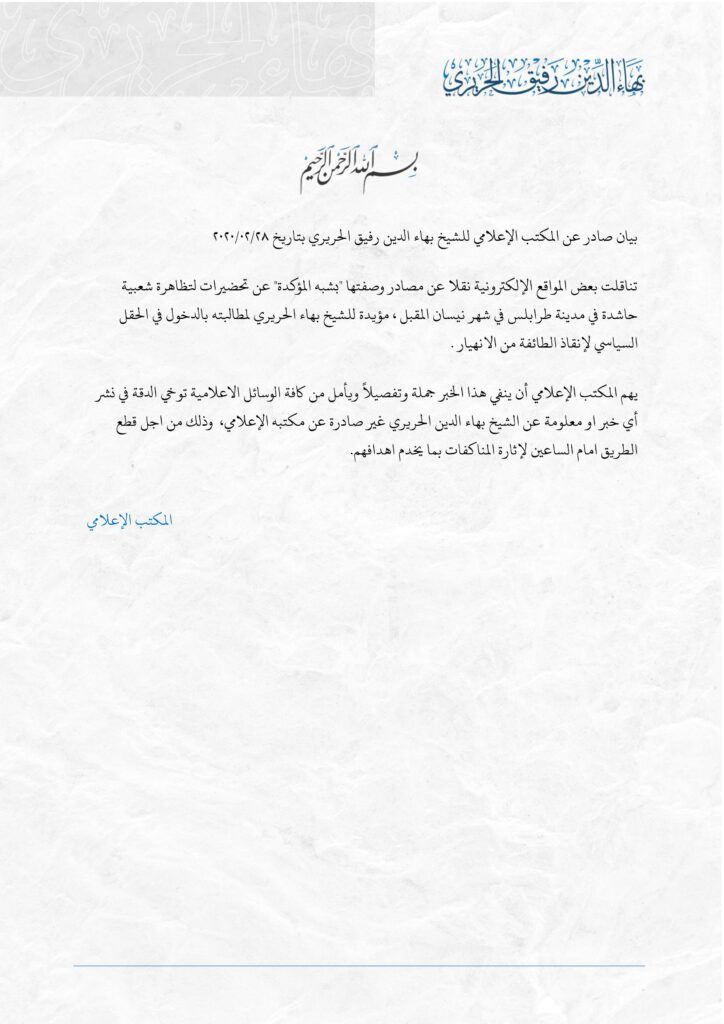 بهاء الدين رفيق الحريري
بسم الله الرحمن الرحيم
بيان صادر عن المكتب الإعلامي للشيخ بهاء الدين رفيق الحريري بتاريخ ٢٠٢٠/٠٢/٢٨
تناقلت بعض المواقع الإلكترونية نقلا عن مصادر وصفتها "بشبه المؤكدة" عن تحضيرات لتظاهرة شعبية
حاشدة في مدينة طرابلس في شهر نيسان المقبل ، مؤيدة للشيخ بهاء الحريري لمطالبته بالدخول في الحقل
السياسي لإنقاذ الطائفة من الانهيار .
يهم المكتب الإعلامي أن ينفي هذا الخبر جملة وتفصيلاً ويأمل من كافة الوسائل الاعلامية توخي الدقة في نشر
أي خبر او معلومة عن الشيخ بهاء الدين الحريري غير صادرة عن مكتبه الإعلامي، وذلك من اجل قطع
الطريق امام الساعين لإثارة المناكفات بما يخدم اهدافهم.
المكتب الإعلامي